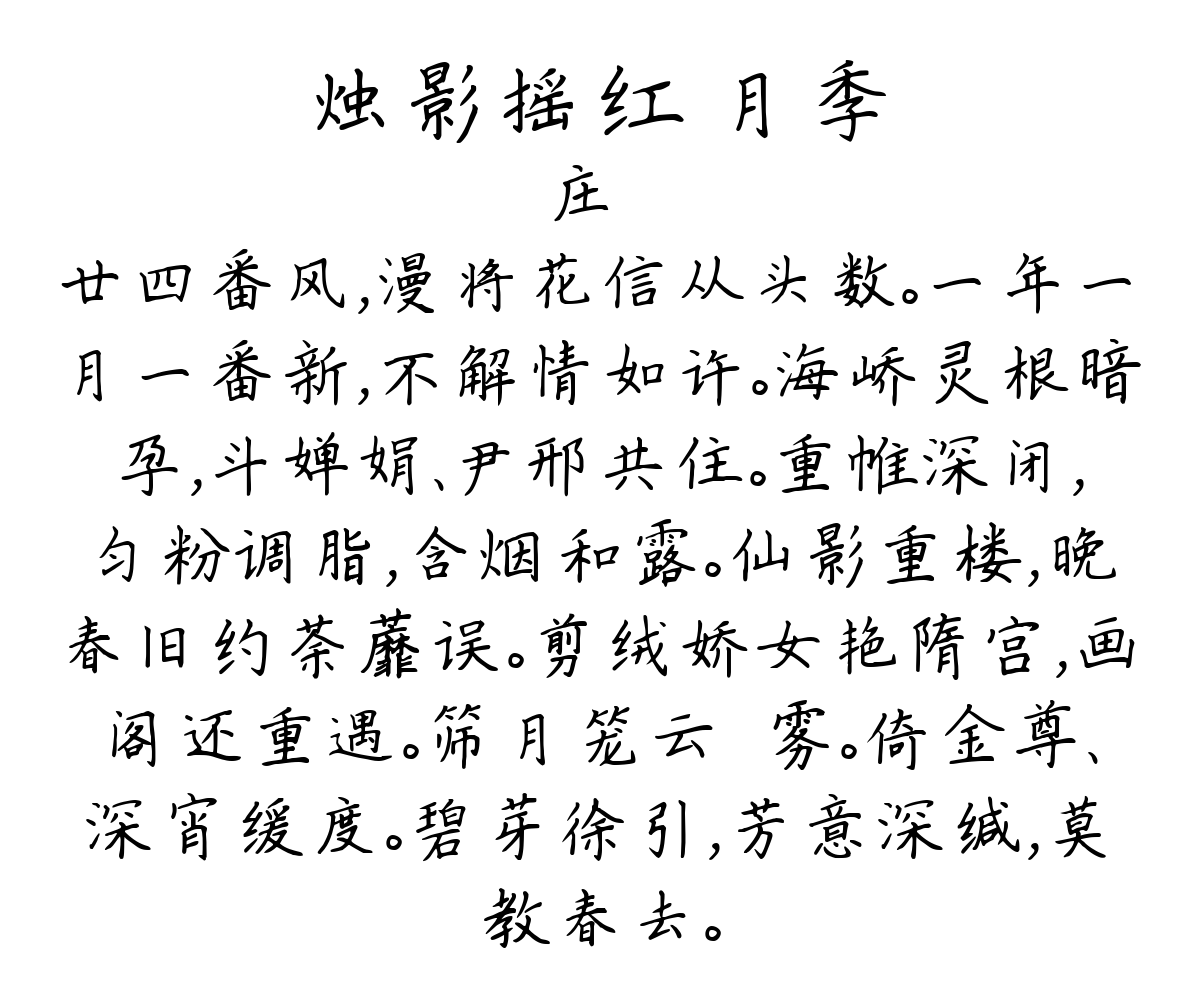 烛影摇红 月季
庄
廿四番风,漫将花信从头数。一年一
月一番新,不解情如许。海峤灵根暗
孕,斗婵娟、尹邢共住。重帷深闭,
匀粉调脂,含烟和露。仙影重楼,晚
春旧约荼蘼误。剪绒娇女艳隋宫,画
阁还重遇。筛月笼云 雾。倚金尊、
深宵缓度。碧芽徐引,芳意深缄,莫
教春去。